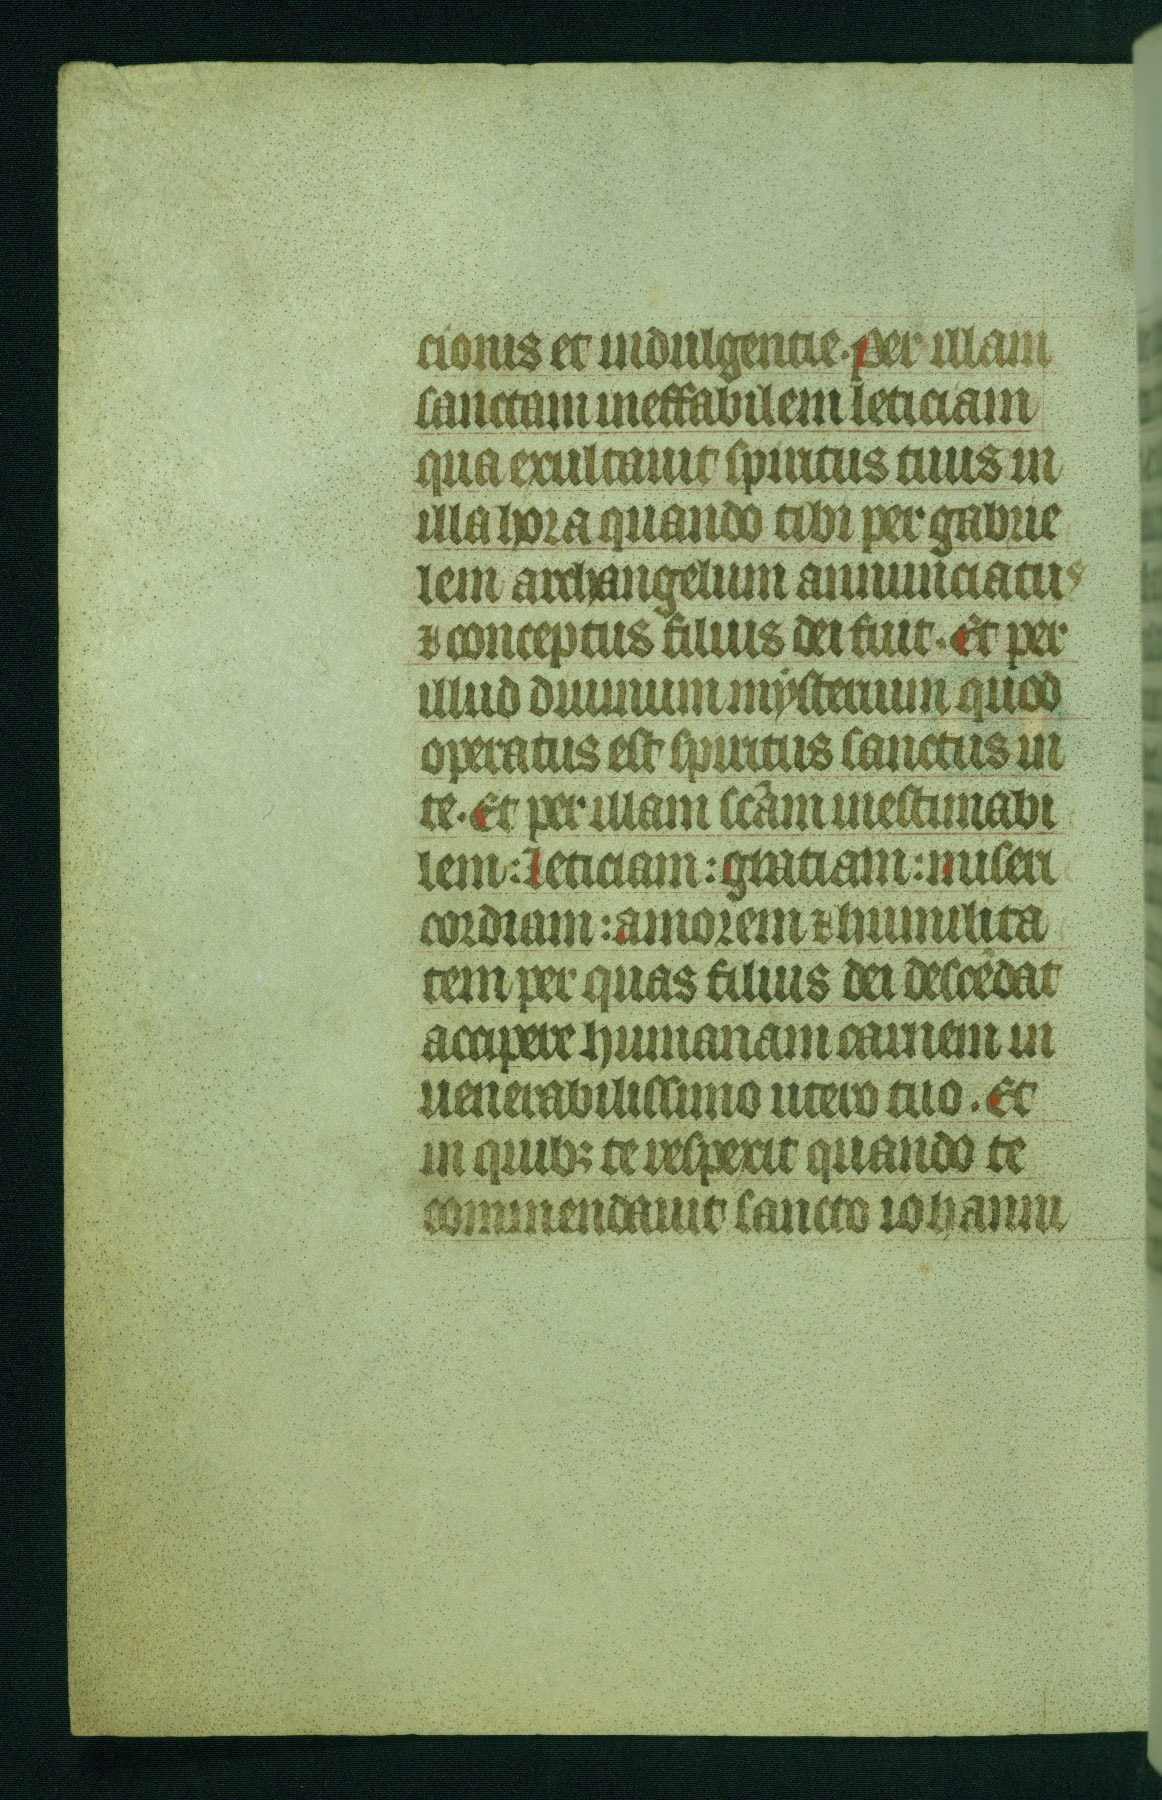 cionis et indulgentie. Per illam
sanctam ineffabilem leticiam
qua exultauit spiritus tuus in
illa hora quando tibi per gabrie
lem archangelum annunciatus
⁊ conceptus filius dei fuit. Et per
illud diuinum mẏsterium quod
operatus est spiritus sanctus in
te. Et per illam sc̄am inestimabi
lem: leticiam: gratiam: miseri
cordiam: amorem ⁊ humilita
tem per quas filius dei descēdat
accipere humanam carnem in
uenerabilissimo utero tuo. Et
in quibꝫ te respexit quando te
commendauit sancto iohanni